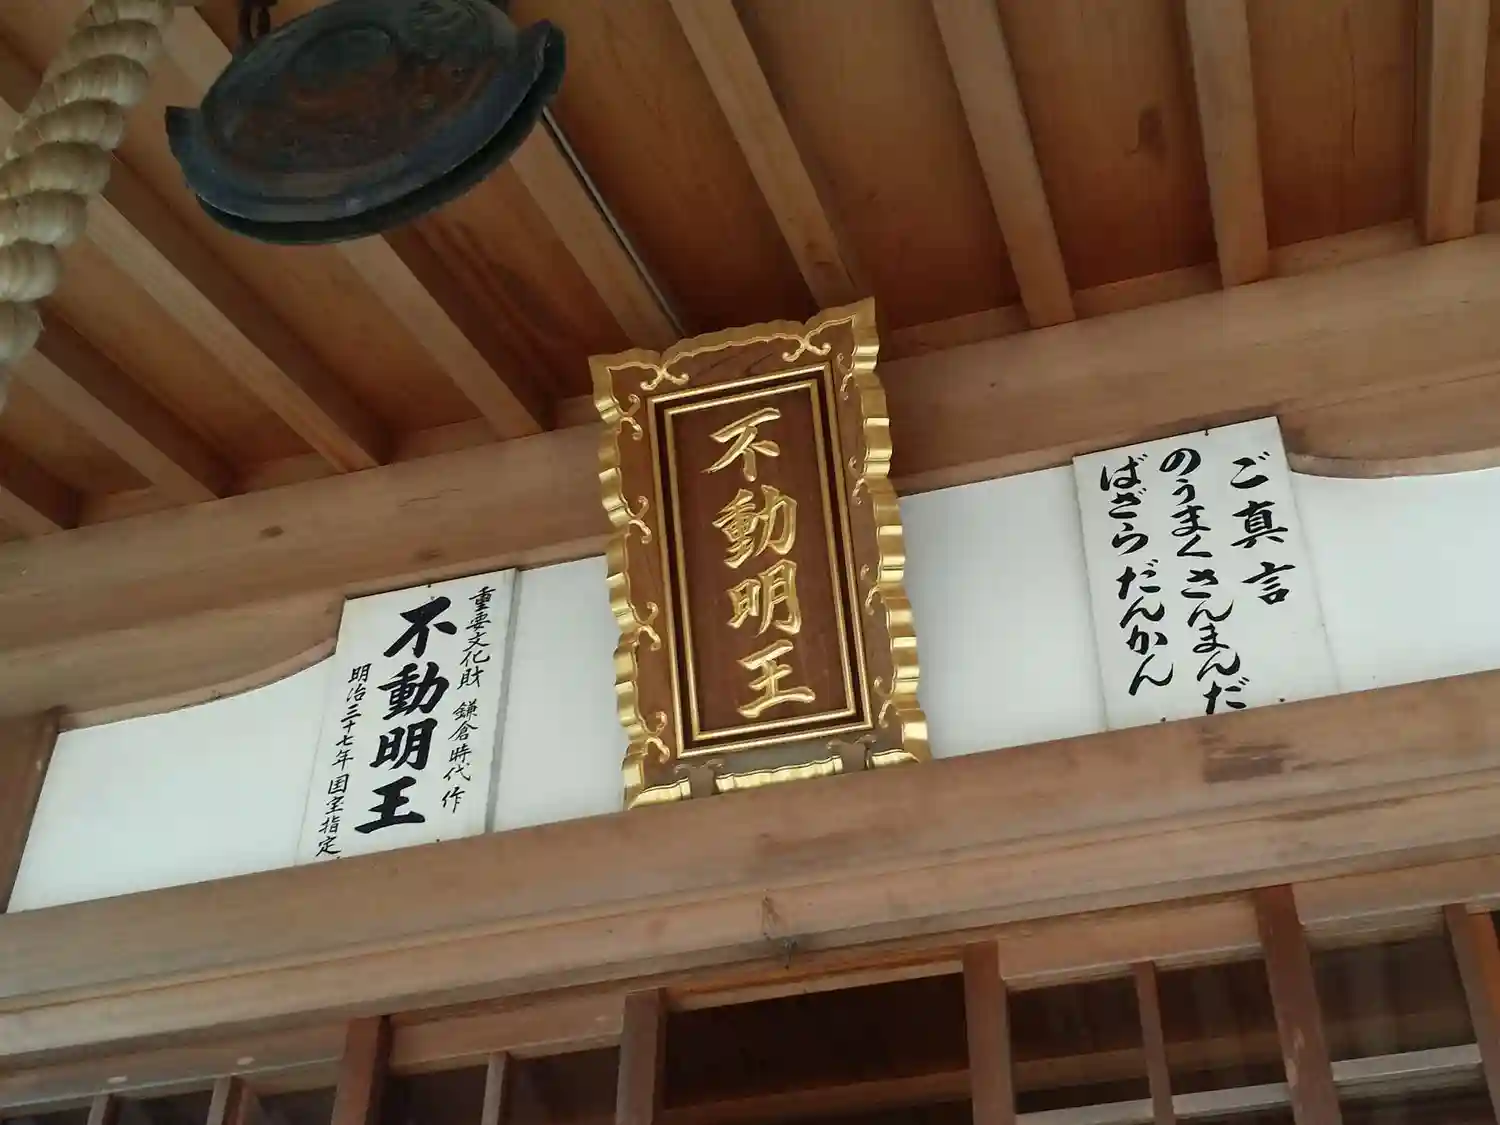 ご真言
のうまくさんまんだ
ばざらだんかん
不動明王
重要文化財 鎌倉時代作
不動明王
明治三十七年国宝指定